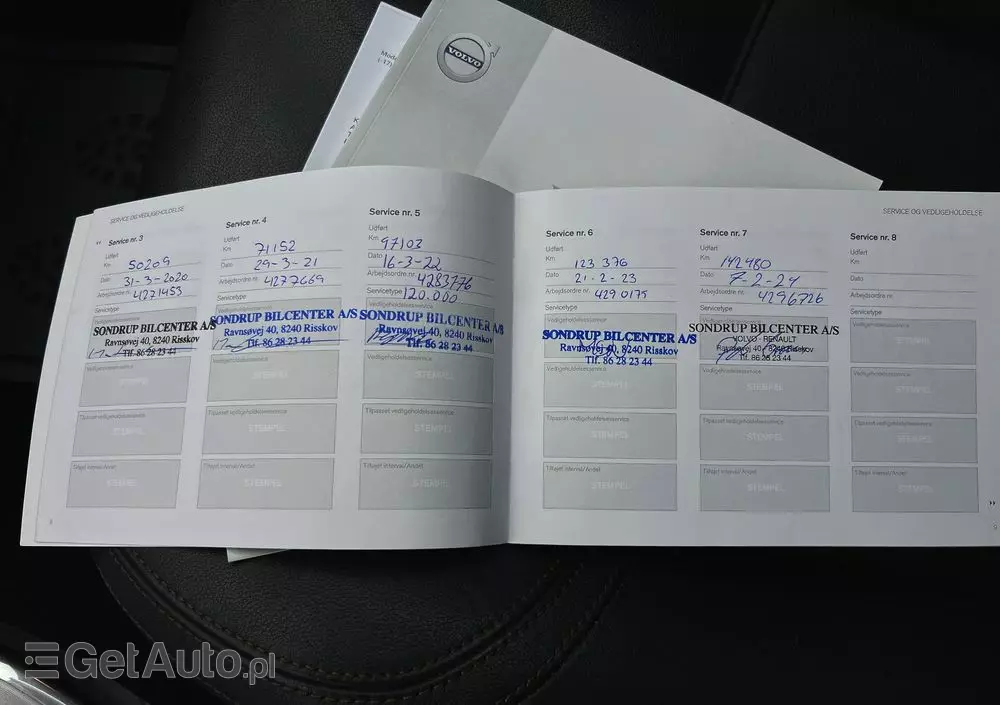 VOLVO
Mode
(-17)
SERVICE OG VEDLIGEHOLDELSE
Service nr. 3
Udført
Km 50209
Dato 31-3-2020
Arbejdsordre nr. 4271453
Servicetype
SONDRUP BILCENTER A/S
Ravnsøvej 40, 8240 Risskov
Tlf. 86 28 23 44
Vedligeholdelsesservice
STEMPEL
Tilpasset vedligeholdelsesservice
STEMPEL
Tilføjet interval/Andet
STEMPEL
Service nr. 4
Udført
Km 71152
Dato 29-3-21
Arbejdsordre nr. 4277669
Servicetype
SONDRUP BILCENTER A/S
Ravnsøvej 40, 8240 Risskov
Tlf. 86 28 23 44
Vedligeholdelsesservice
STEMPEL
Tilpasset vedligeholdelsesservice
STEMPEL
Tilføjet interval/Andet
STEMPEL
Service nr. 5
Udført
Km 97103
Dato 16-3-22
Arbejdsordre nr. 4283776
Servicetype 120.000
Vedligeholdelsesservice
SONDRUP BILCENTER A/S
Ravnsøvej 40, 8240 Risskov
Tlf. 86 28 23 44
Vedligeholdelsesservice
STEMPEL
Tilpasset vedligeholdelsesservice
STEMPEL
Tilføjet interval/Andet
STEMPEL
SERVICE OG VEDLIGEHOLDELSE
Service nr. 6
Udført
Km 123 376
Dato 21-2-23
Arbejdsordre nr. 4290175
Servicetype
SONDRUP BILCENTER A/S
Ravnsøvej 40, 8240 Risskov
Tlf. 86 28 23 44
STEMPEL
Tilpasset vedligeholdelsesservice
STEMPEL
Tilføjet interval/Andet
STEMPEL
Service nr. 7
Udført
Km 142480
Dato 7-2-24
Arbejdsordre nr. 4296726
Servicetype
SONDRUP BILCENTER A/S
VOLVO - RENAULT
Ravnsøvej 40 - 8240 Risskov
Tlf. 86 28 23 44
Vedligeholdelsesservice
STEMPEL
Tilpasset vedligeholdelsesservice
STEMPEL
Tilføjet interval/Andet
STEMPEL
Service nr. 8
Udført
Km
Dato
Arbejdsordre nr.
Servicetype
Vedligeholdelsesservice
STEMPEL
Vedligeholdelsesservice
STEMPEL
Tilpasset vedligeholdelsesservice
STEMPEL
Tilføjet interval/Andet
STEMPEL
8
9
GetAuto.pl